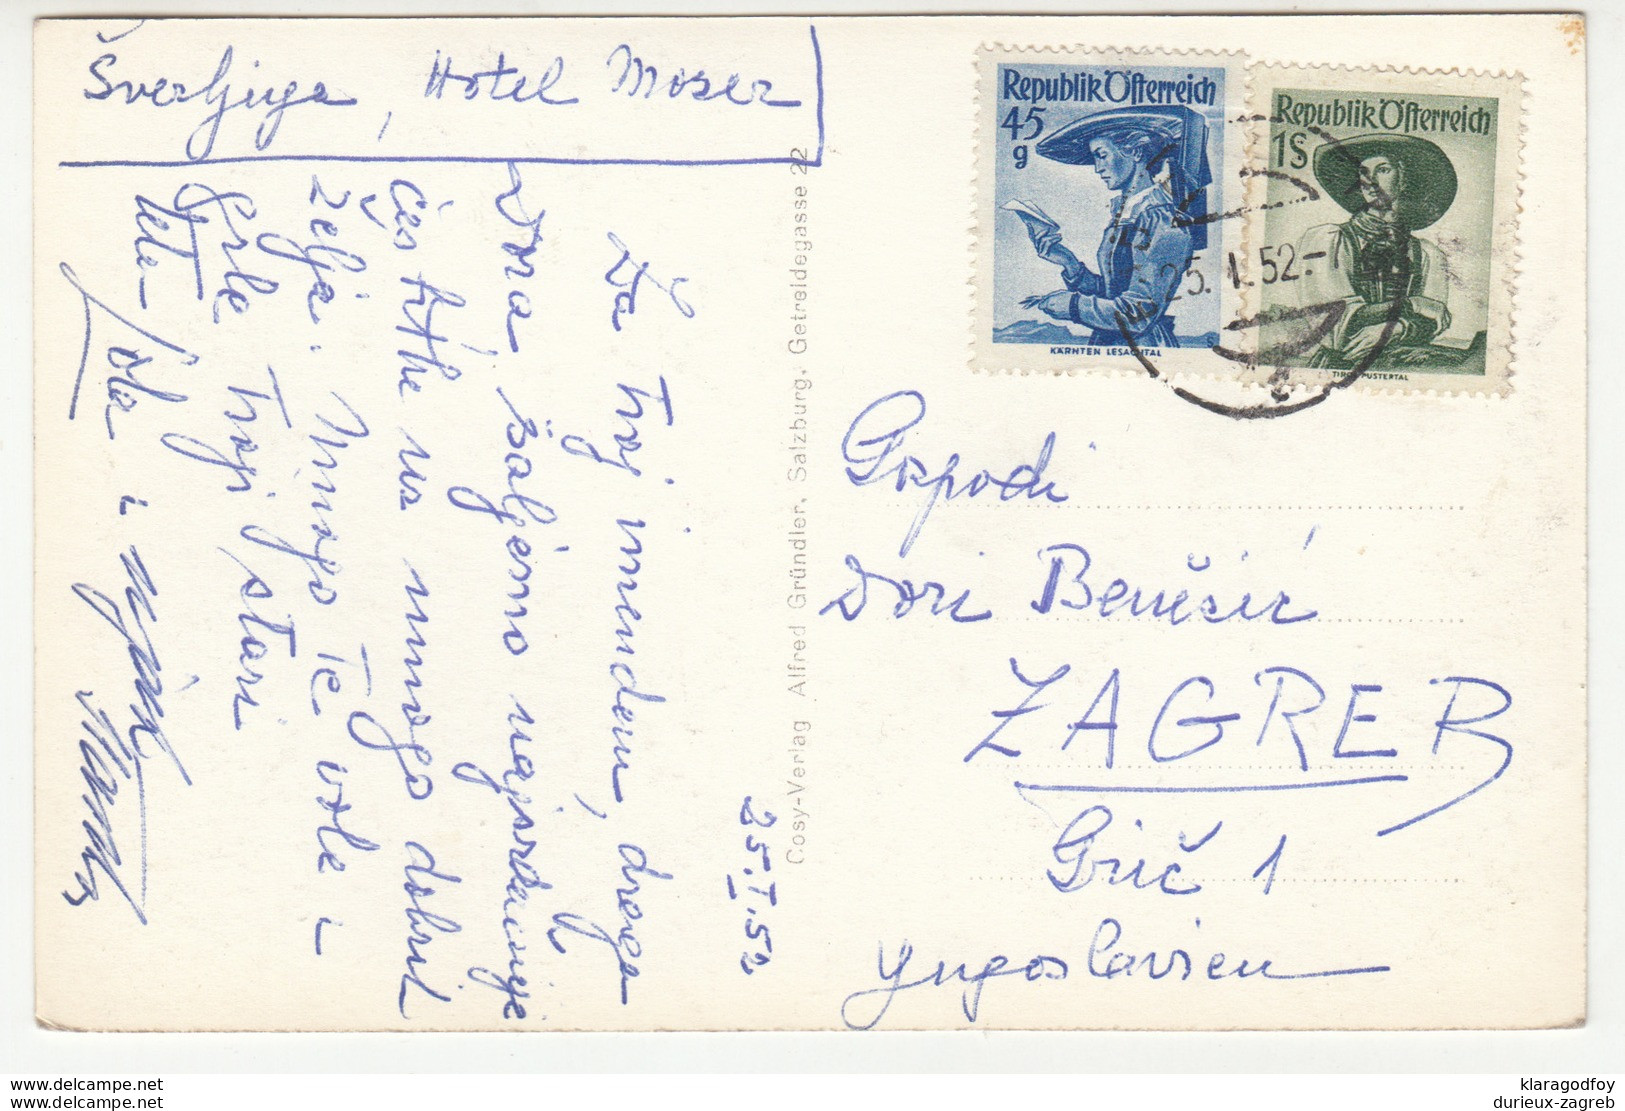 Šverljuga, Hotel Moser
Za Tvoj imendan, draga
Dora, šaljemo najsrdačnije
čestitke uz mnogo dobrih
želja. Mnogo Te vole i
grle Tvoji stari
teta Jola i
25.I.52
Cosy-Verlag Alfred Gründler, Salzburg, Getreidegasse 22
Republik Österreich
45
g
KÄRNTEN LESACHTAL
Republik Österreich
1S
TIROL PUSTERTAL
25. 1. 52.-
Gospodi
Dori Benešić
ZAGREB
Grič 1
Yugoslavien
klaragodfoy
durieux-zagreb
www.delcampe.net
www.delcampe.net
klaragodfoy
durieux-zagreb